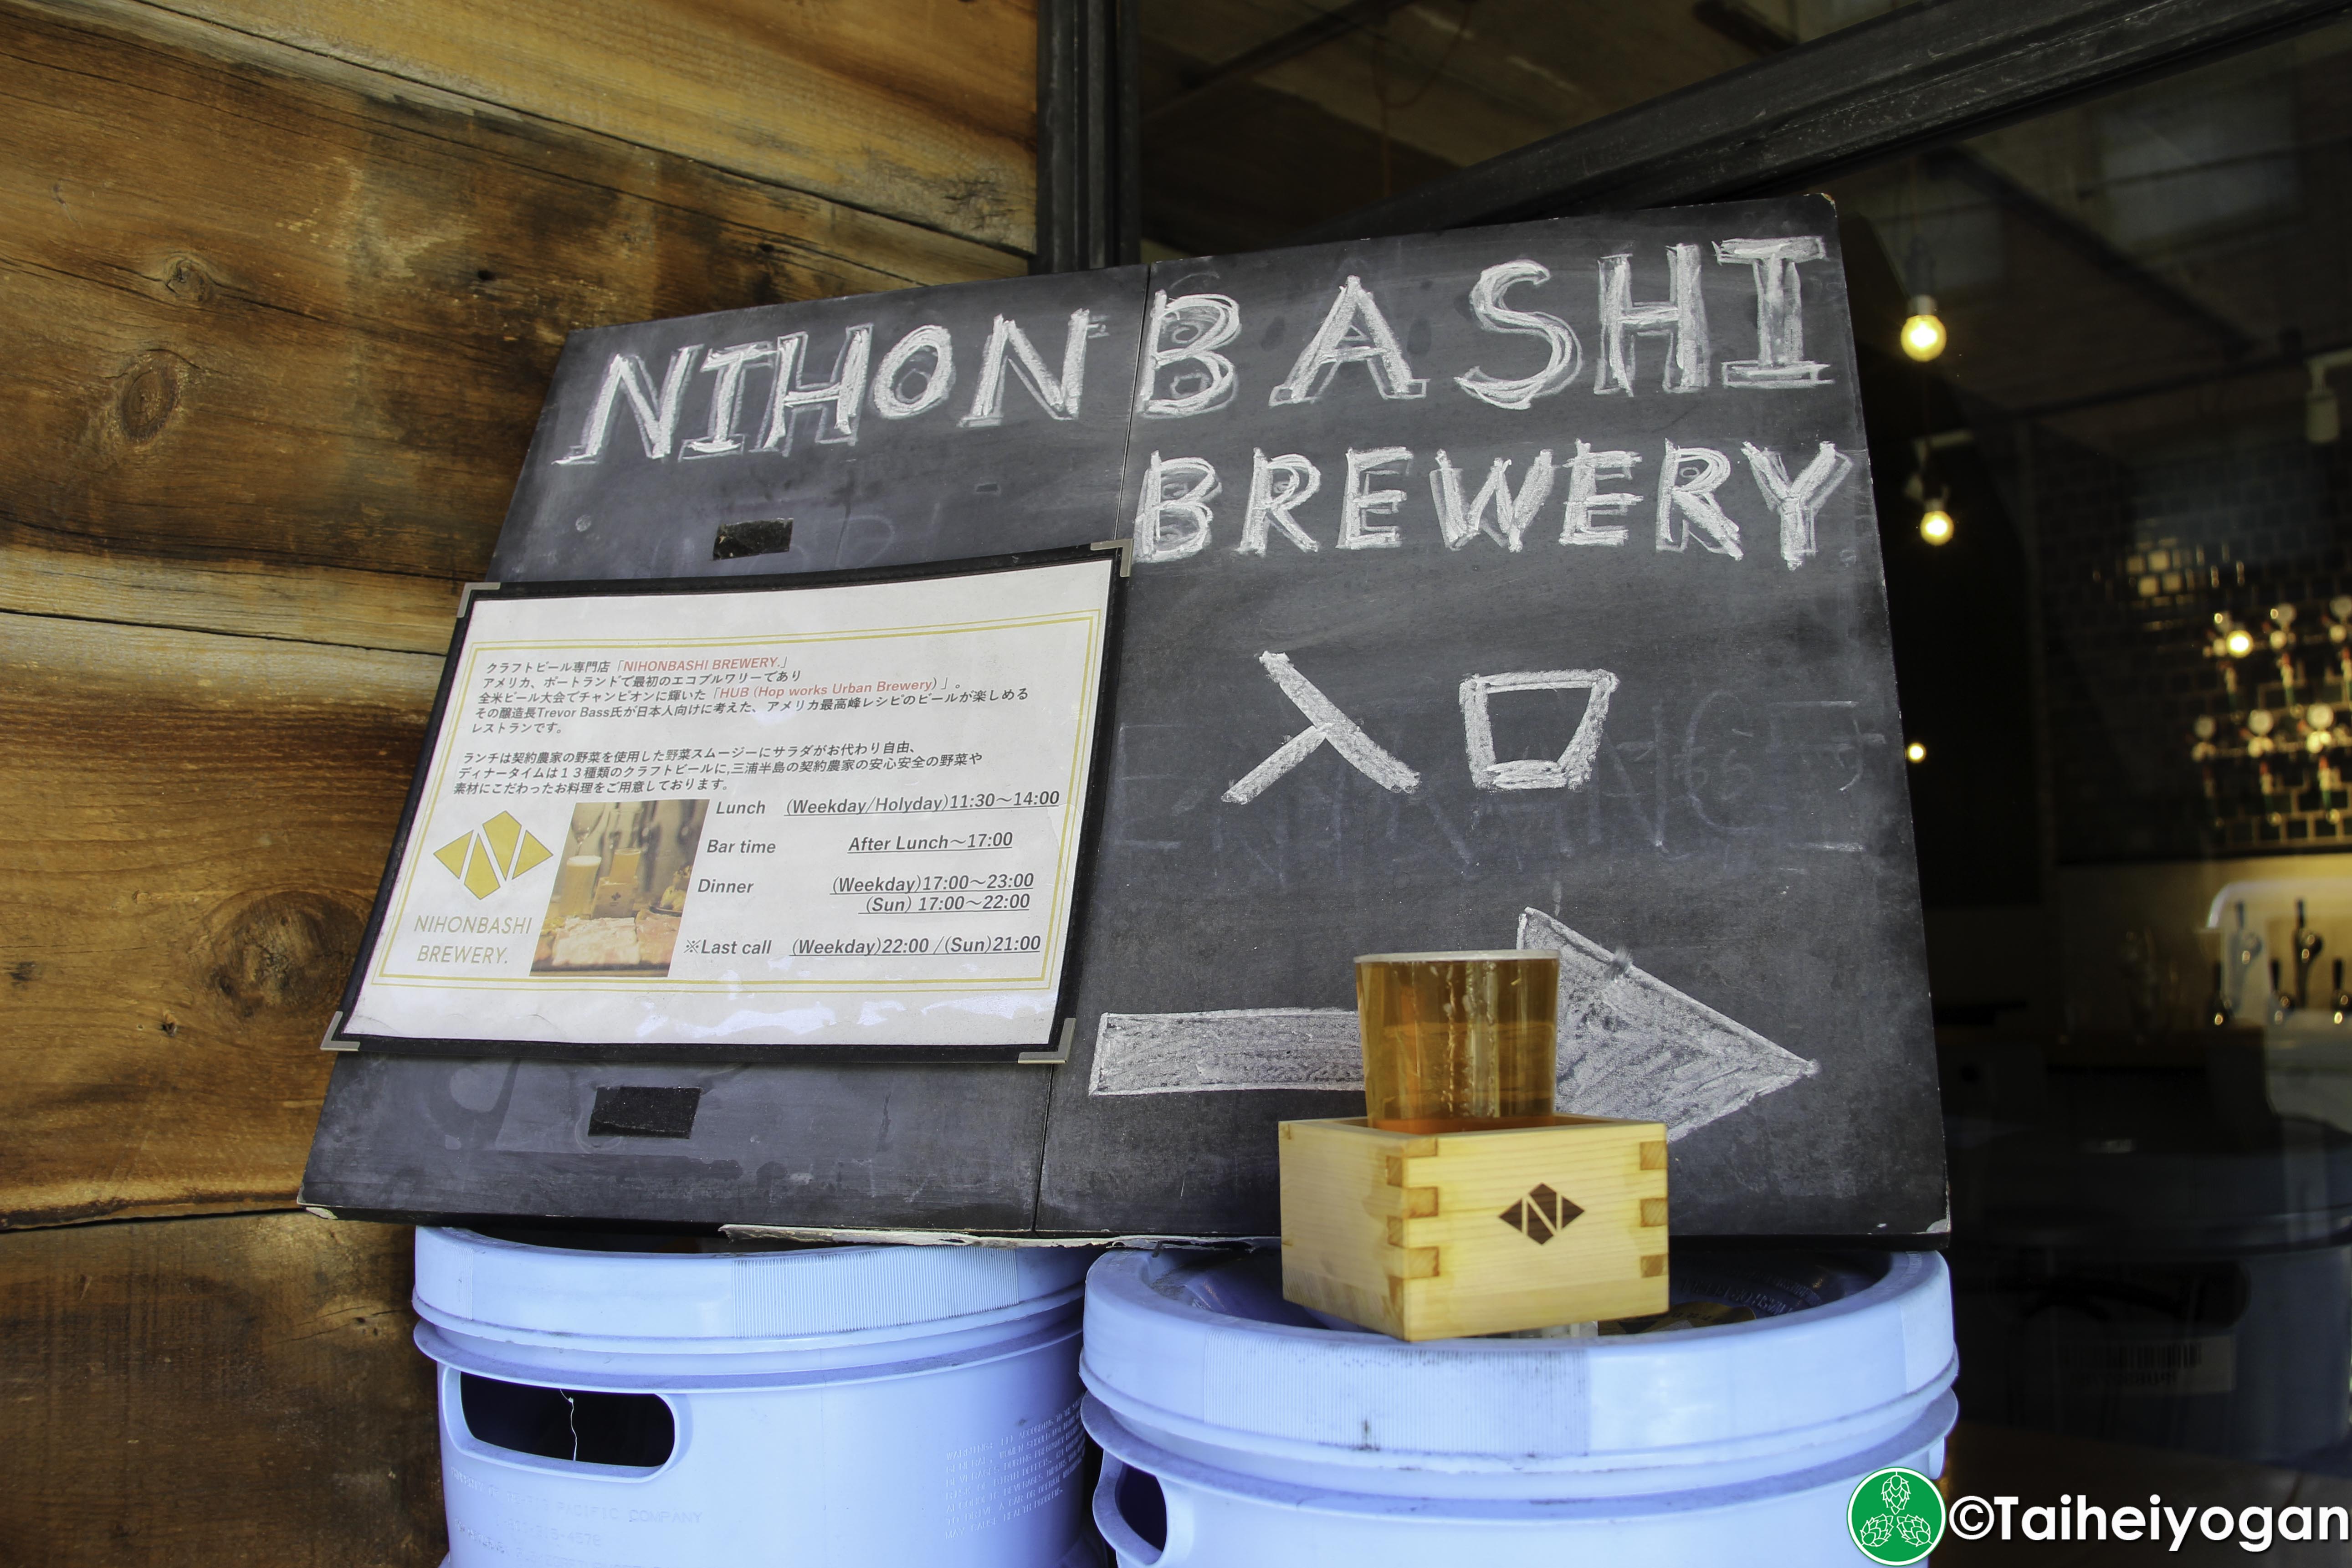 NIHONBASHI
BREWERY
入口
クラフトビール専門店「NIHONBASHI BREWERY.」
アメリカ、ポートランドで最初のエコブルワリーであり
全米ビール大会でチャンピオンに輝いた「HUB (Hop works Urban Brewery) 」。
その醸造長Trevor Bass氏が日本人向けに考えた、アメリカ最高峰レシピのビールが楽しめる
レストランです。
ランチは契約農家の野菜を使用した野菜スムージーにサラダがお代わり自由、
ディナータイムは１３種類のクラフトビールに,三浦半島の契約農家の安心安全の野菜や
素材にこだわったお料理をご用意しております。
Lunch (Weekday/Holyday)11:30〜14:00
Bar time After Lunch〜17:00
Dinner (Weekday)17:00〜23:00
(Sun) 17:00〜22:00
※Last call (Weekday)22:00 /(Sun)21:00
NIHONBASHI
BREWERY.
N
PACIFIC COMPANY
©Taiheiyogan